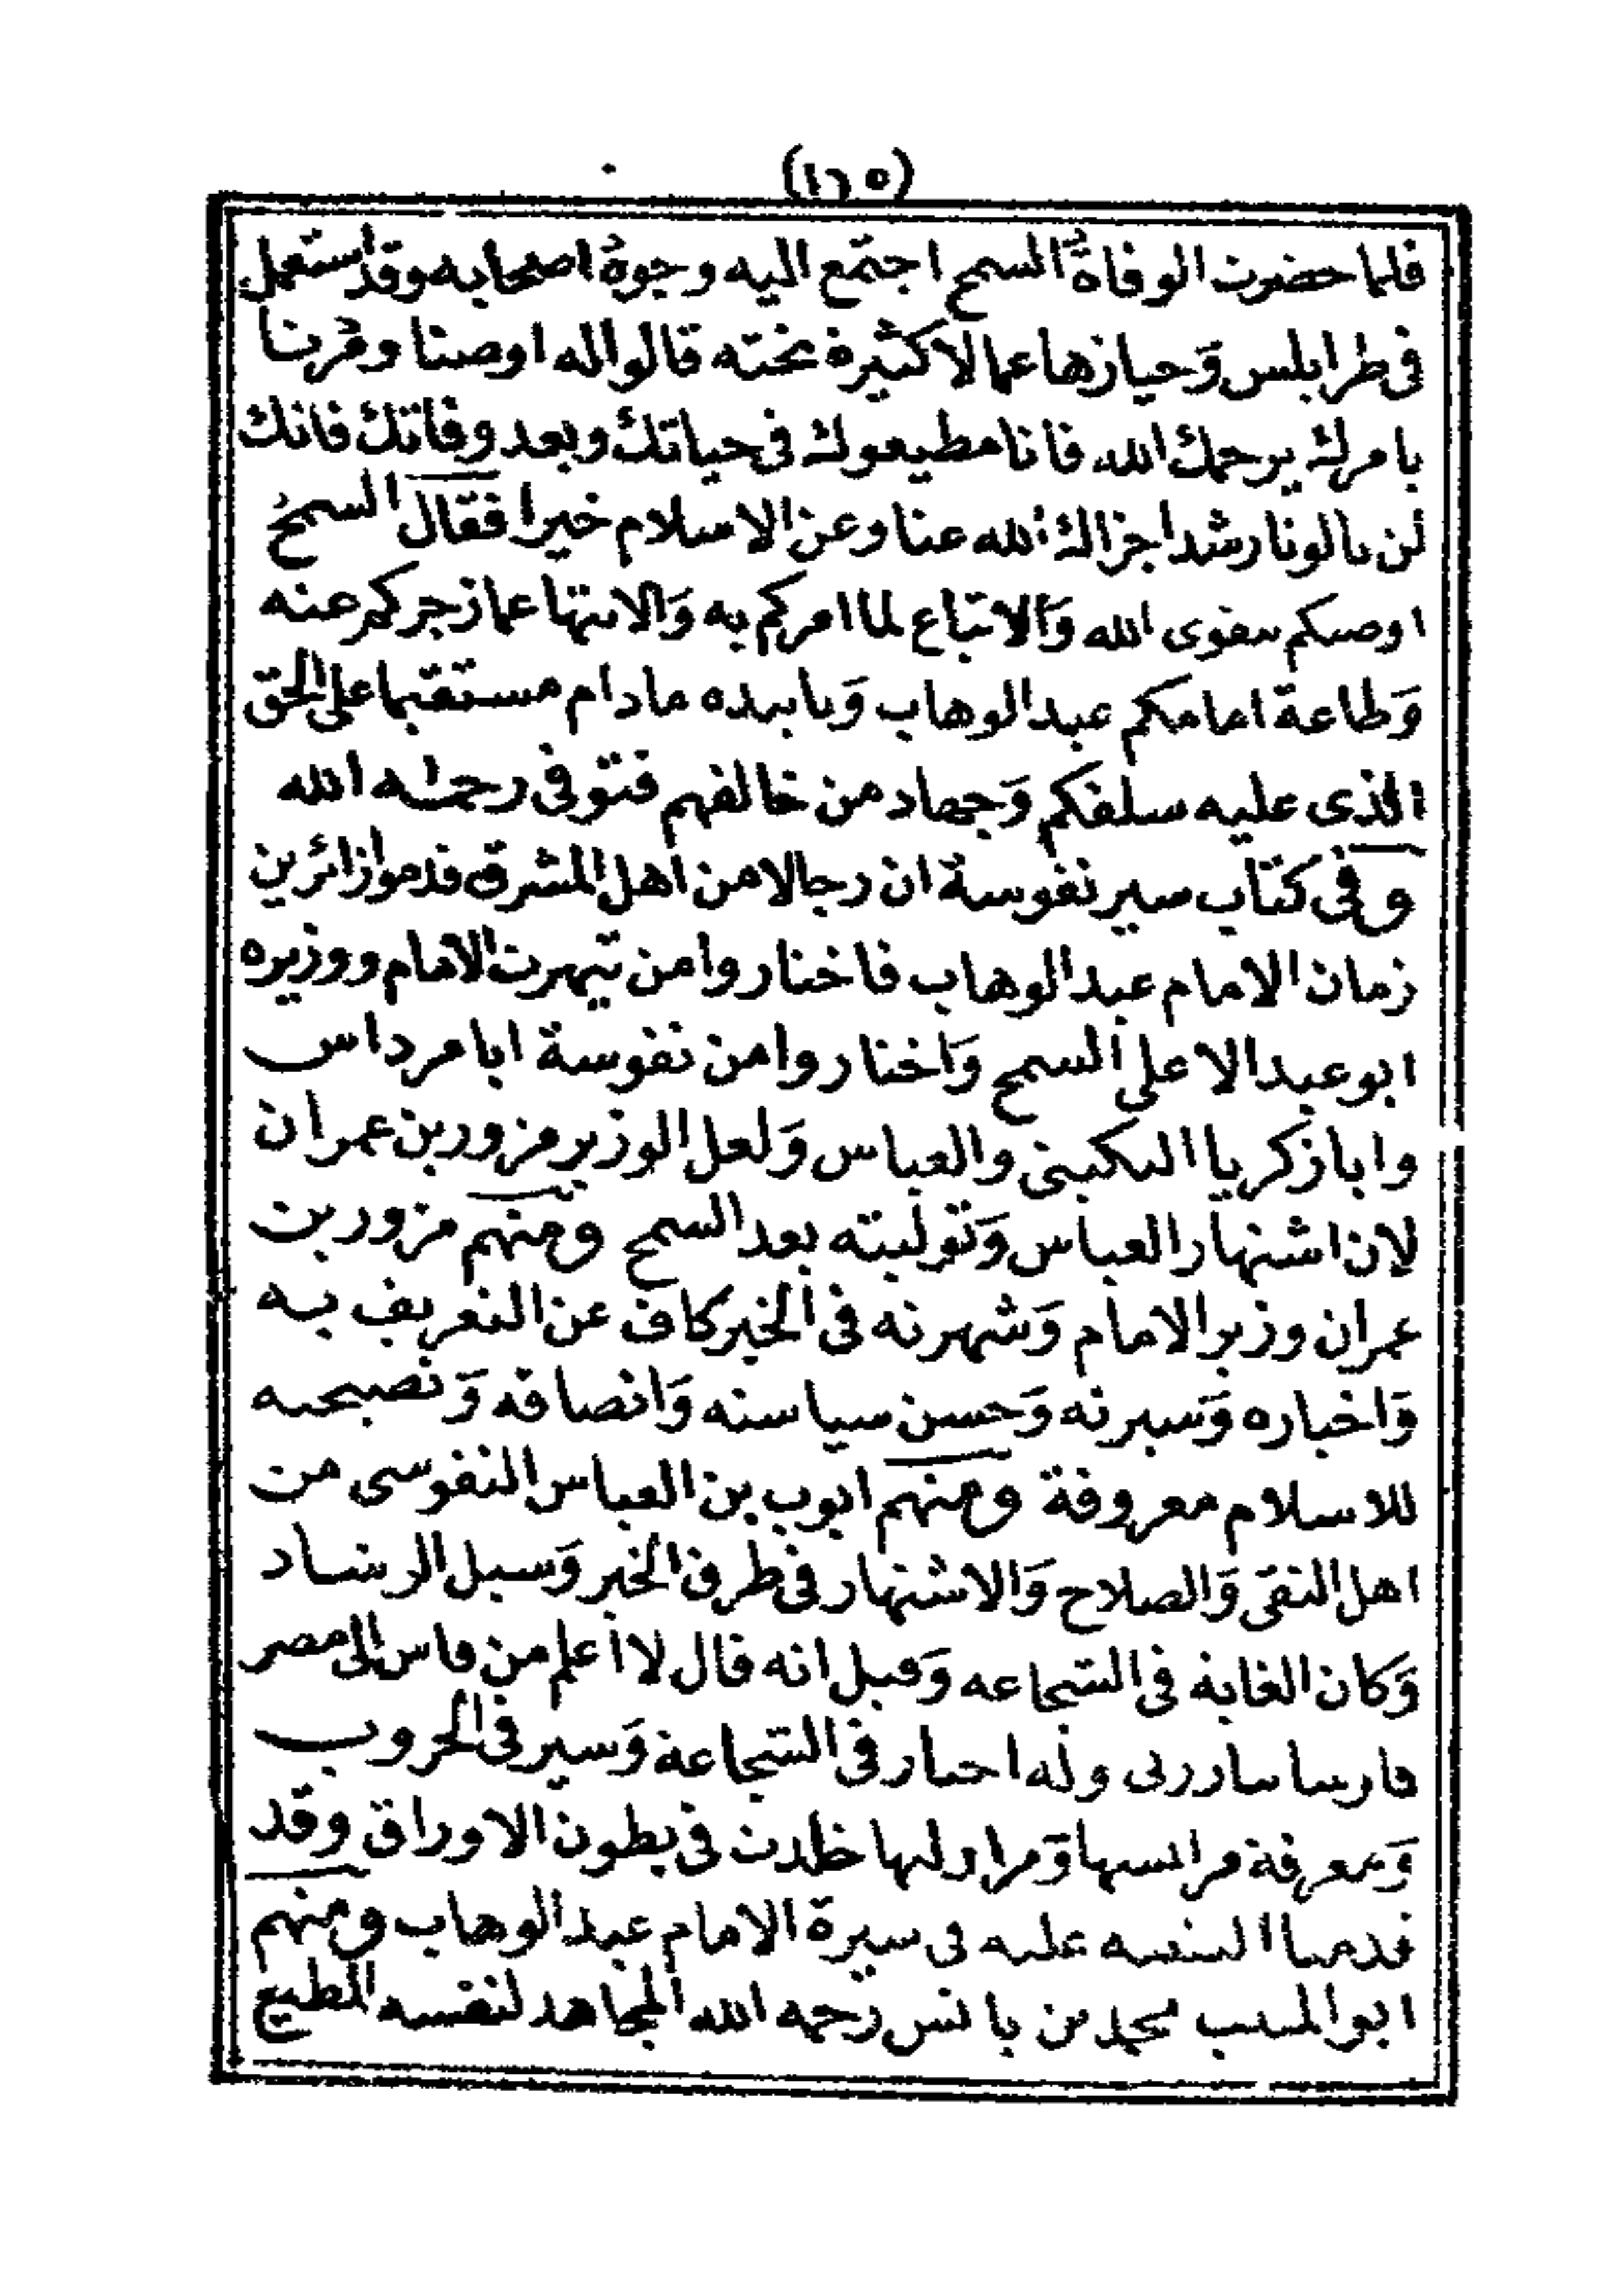 (١٦٥)
فلما حضرت الوفاة السمح اجتمع اليه وجوه اصحابه وقد استعمل
فى طرابلس وَحيازها عمالا كثيرة تحته قالوا له اوصنا ومُرنا
بامرك يرحمك الله فانا مطيعوك فى حياتك وبعد وفاتك فانك
لن تالونا رشدا جزاك الله عنا وعن الاسلام خيرا فقال السمح
اوصيكم بتقوى الله وَالاتباع لما امركم به وَالانتها عما زجركم عنه
وَطاعة امامكم عبد الوهاب وَتاييده مادام مستقيما على الحق
الذى عليه سلفكم وَجهاد من خالفهم فتوفى رحمه الله
وفى كتاب سير نفوسة ان رجالا من اهل المشرق قدموا زائرين
زمان الامام عبد الوهاب فاختاروا من تيهرت الامام ووزيره
ابو عبد الاعلى السمح وَاختاروا من نفوسة ابا مرداس
وابا زكريا التكيتى والعباس وَلعل الوزير مزور بن عمران
لان اشتهار العباس وَتوليته بعد السمح ومنهم مزور بن
عمران وزير الامام وَشهرته فى الخير كاف عن التعريف به
وَاخباره وَسيرته وَحسن سياسته وَانصافه وَنصيحته
للاسلام معروفة ومنهم ايوب بن العباس النفوسى من
اهل التقى وَالصلاح وَالاشتهار فى طرق الخير وَسبل الرشاد
وَكان الغاية فى الشجاعه وَقيل انه قال لا اعلم من فاس الى مصر
فارسا وله اخبار فى الشجاعة وَسير فى الحروب
وَمعرفة خلدت فى بطون الاوراق وقد
قدمنا التنبيه عليه فى سيرة الامام عبد الوهاب ومنهم
ابو المنيب محمد بن يانس رحمه الله المجاهد لنفسه المطيع